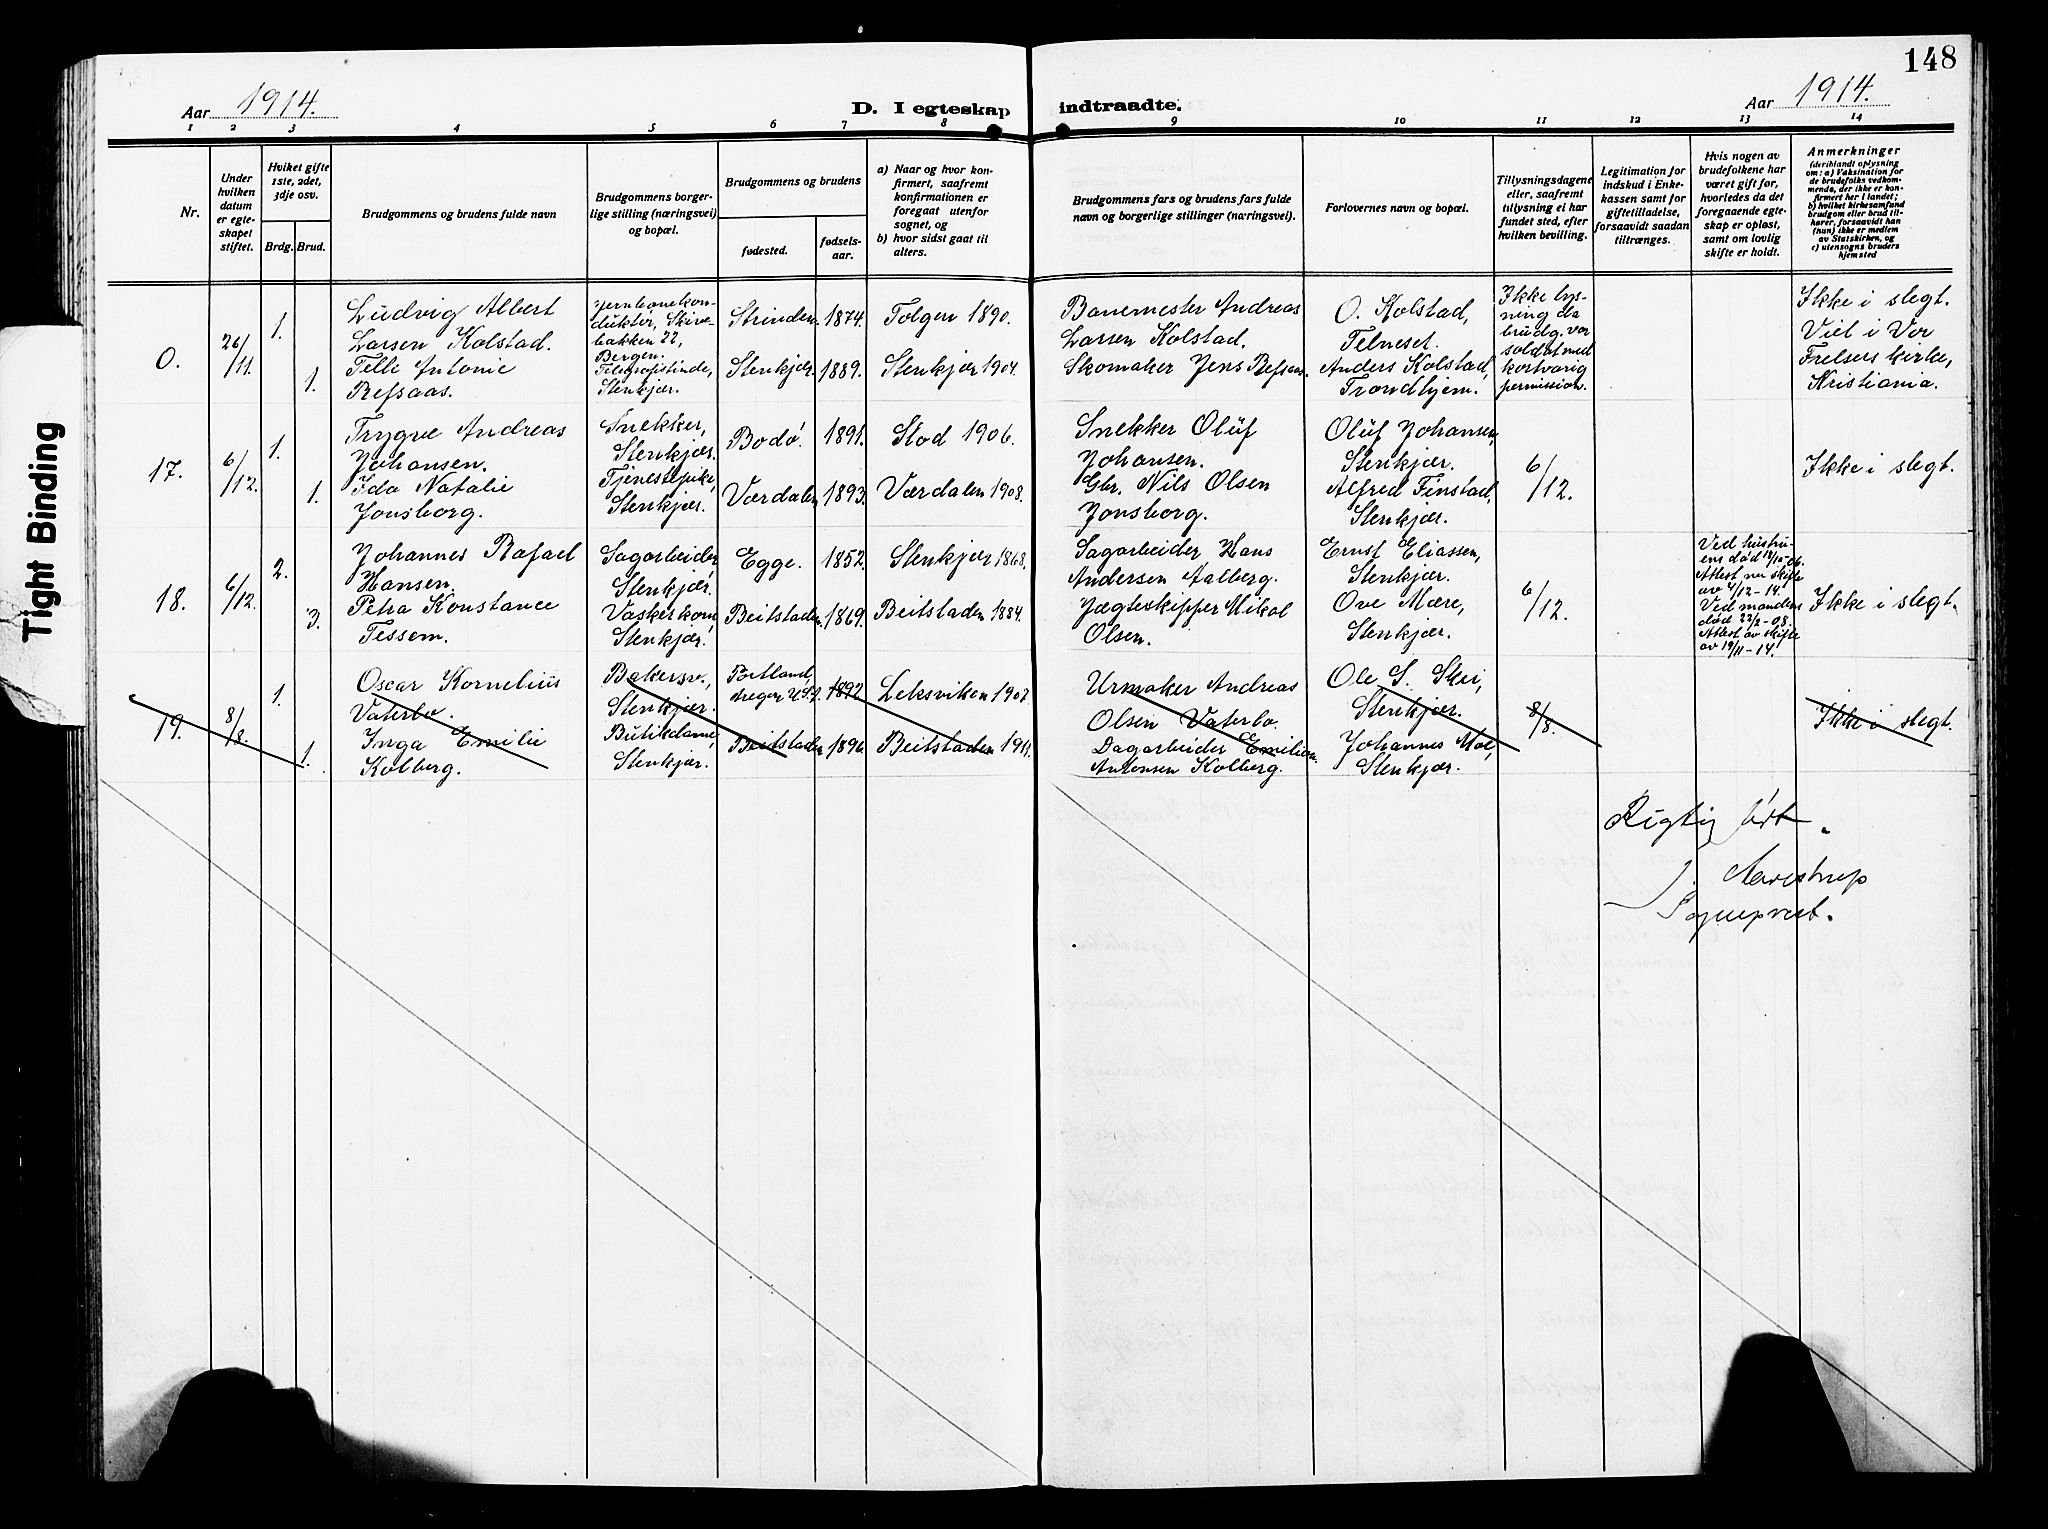 148
Aar 1914.
D. I egteskap indtraadte.
Aar 1914.
1 2 3 4 5 6 7 8 9 10 11 12 13 14
Nr.
Under hvilken datum er egteskapet stiftet.
Hviket gifte 1ste, 2det, 3dje osv.
Brdg. Brud.
Brudgommens og brudens fulde navn
Brudgommens borgerlige stilling (næringsvei) og bopæl.
Brudgommens og brudens
fødested.
fødselsaar.
a) Naar og hvor konfirmert, saafremt konfirmationen er foregaat utenfor sognet, og
b) hvor sidst gaat til alters.
Brudgommens fars og brudens fars fulde navn og borgerlige stillinger (næringsvei).
Forlovernes navn og bopæl.
Tillysningsdagene eller, saafremt tillysning ei har fundet sted, efter hvilken bevilling.
Legitimation for indskud i Enkekassen samt for giftetilladelse, forsaavidt saadan tiltrænges.
Hvis nogen av brudefolkene har været gift før, hvorledes da det foregaaende egteskap er opløst, samt om lovlig skifte er holdt.
Anmerkninger
(deriblandt oplysning om: a) Vaksination for de brudefolks vedkommende, der ikke er konfirmert her i landet;
b) hvilket kirkesamfund brudgom eller brud tilhører, forsaavidt han (hun) ikke er medlem av Statskirken, og
c) utensogns bruders hjemsted
0. 26/11. 1. 1.
Ludvig Albert
Larsen Kolstad.
Telli Antonie
Refsaas.
Jernbanekonduktør, Skivebakken 22,
Bergen.
Telegrafistinde,
Stenkjær.
Strinden. 1874. Tolgen 1890.
Stenkjær. 1889. Stenkjær 1904.
Banemester Andreas
Larsen Kolstad.
Skomaker Jens Refsaas.
O. Kolstad,
Telneset.
Anders Kolstad,
Trondhjem.
Ikke lysning da
brudg. var
soldat med
kortvarig
permission.
Ikke i slegt.
Viet i Vor
Frelsers kirke,
Kristiania.
17. 6/12. 1. 1.
Trygve Andreas
Johansen.
Ida Natalie
Jonsborg.
Snekker,
Stenkjær.
Tjenestepike,
Stenkjær.
Bodø. 1891. Stod 1906.
Værdalen. 1893. Værdalen 1908.
Snekker Oluf
Johansen.
Gbr. Nils Olsen
Jonsborg.
Oluf Johansen,
Stenkjær.
Alfred Finstad,
Stenkjær.
6/12.
Ikke i slegt.
18. 6/12. 2. 3.
Johannes Rafael
Hansen.
Petra Konstance
Tessem.
Sagarbeider,
Stenkjær.
Vaskerkone
Stenkjær.
Egge. 1852. Stenkjær 1868.
Beitstaden. 1869. Beitstaden 1884.
Sagarbeider Hans
Andersen Aalberg.
Jægteskipper Mikal
Olsen.
Ernst Eliassen,
Stenkjær.
Ove Mære,
Stenkjær.
6/12.
Ved hustruens død
Attest
av 4/12-14.
Ved mandens
død 22/2-08.
Attest av skifte
av 19/11-14.
Ikke i slegt.
19. 8/8. 1. 1.
Oscar Kornelius
Vaterbo.
Inga Emilie
Kolberg.
Bakersv.,
Stenkjær.
Butikdame,
Stenkjær.
Portland,
1892 Leksviken 1907
Beitstaden 1896. Beitstaden 1911.
Urmaker Andreas
Olsen Vaterbo.
Dagarbeider Emilian
Antonsen Kolberg.
Ole S. Skei,
Stenkjær.
Johannes Moe,
Stenkjær.
8/8.
Ikke i slegt.
Rigtig ført.
J. Aarestrup
Sogneprest.
Tight Binding